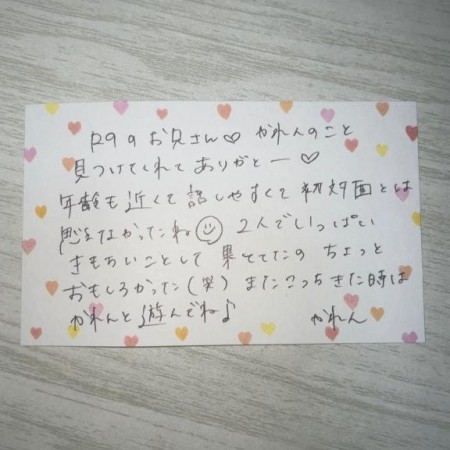 R9のお兄さん♡ かれんのこと
見つけてくれてありがとー♡
年齢も近くて話しやすくて初対面とは
思えなかったね☺ 2人でいっぱい
きもちいことして 果ててたの ちょっと
おもしろかった(笑) またこっちきた時は
かれんと遊んでね♪ かれん